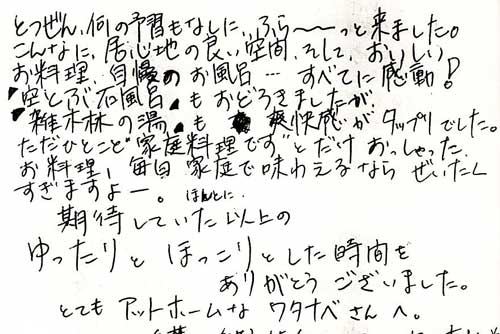 とつぜん、何の予習もなしに、ふら〜〜っと来ました。
こんなに、居心地の良い空間、そして、おいしい
お料理、自慢のお風呂… すべてに感動!
"空とぶ石風呂"もおどろきましたが、
"雑木林の湯"も 爽快感がタップリでした。
ただひとこと"家庭料理です"とだけおっしゃった
お料理、毎日 家庭で味わえるなら ぜいたく
すぎますよー。 ほんとに。
期待していた以上の
ゆったりと ほっこりとした時間を
ありがとう ございました。
とても アットホームな ワタナベさんへ。